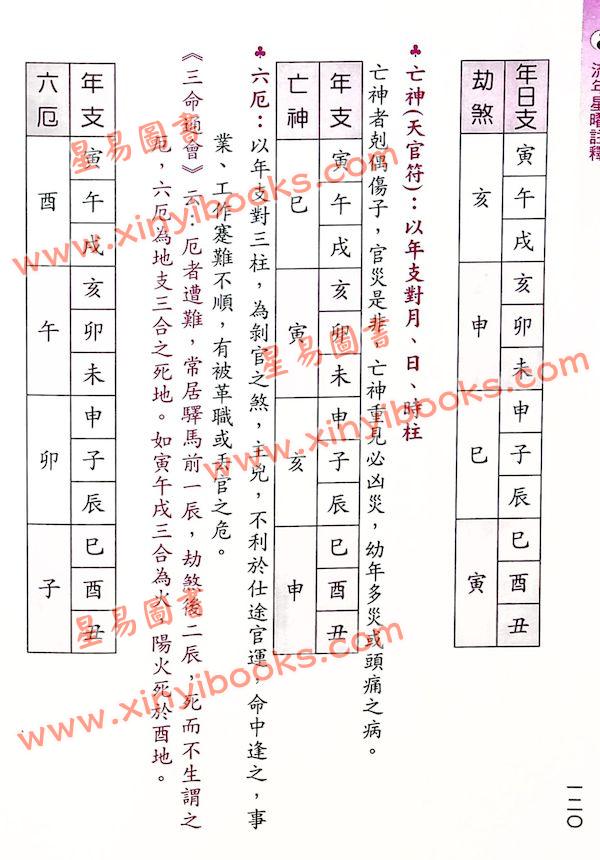 流年星曜註釋
年日支 寅 午 戌 亥 卯 未 申 子 辰 巳 酉 丑
劫煞 亥 申 巳 寅
♣亡神(天官符)：以年支對月、日、時柱
亡神者剋偶傷子，官災是非，亡神重見必凶災，幼年多災或頭痛之病。
年支 寅 午 戌 亥 卯 未 申 子 辰 巳 酉 丑
亡神 巳 寅 亥 申
♣六厄：以年支對三柱，為剝官之煞，主兇，不利於仕途官運，命中逢之，事
業、工作蹇難不順，有被革職或丟官之危。
《三命通會》云：厄者遭難，常居驛馬前一辰，劫煞後二辰，死而不生謂之
厄，六厄為地支三合之死地。如寅午戌三合為火，陽火死於酉地。
年支 寅 午 戌 亥 卯 未 申 子 辰 巳 酉 丑
六厄 酉 午 卯 子
一二〇
星易圖書
www.xinyibooks.com
星易圖書
www.xinyibooks.com
星易圖書
www.xinyibooks.com